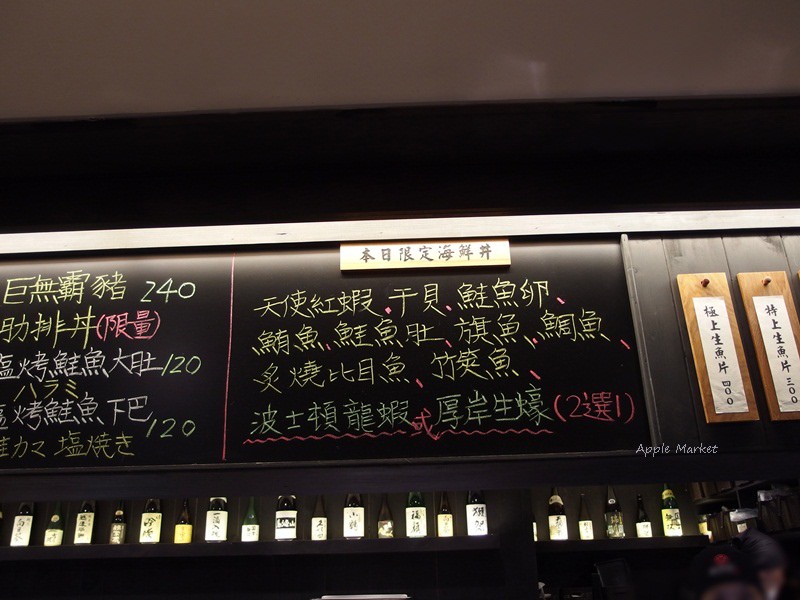 本日限定海鮮丼
巨無霸豬 240
肋排丼(限量)
塩烤鮭魚大肚120
ハラミ
塩烤鮭魚下巴
120
鮭カマ 塩焼き
天使紅蝦、干貝、鮭魚卵、
鮪魚、鮭魚肚、旗魚、鯛魚、
炙燒比目魚、竹筴魚、
波士頓龍蝦或厚岸生蠔(2選1)
極上生魚片 四00
特上生魚片 三00
Apple Market